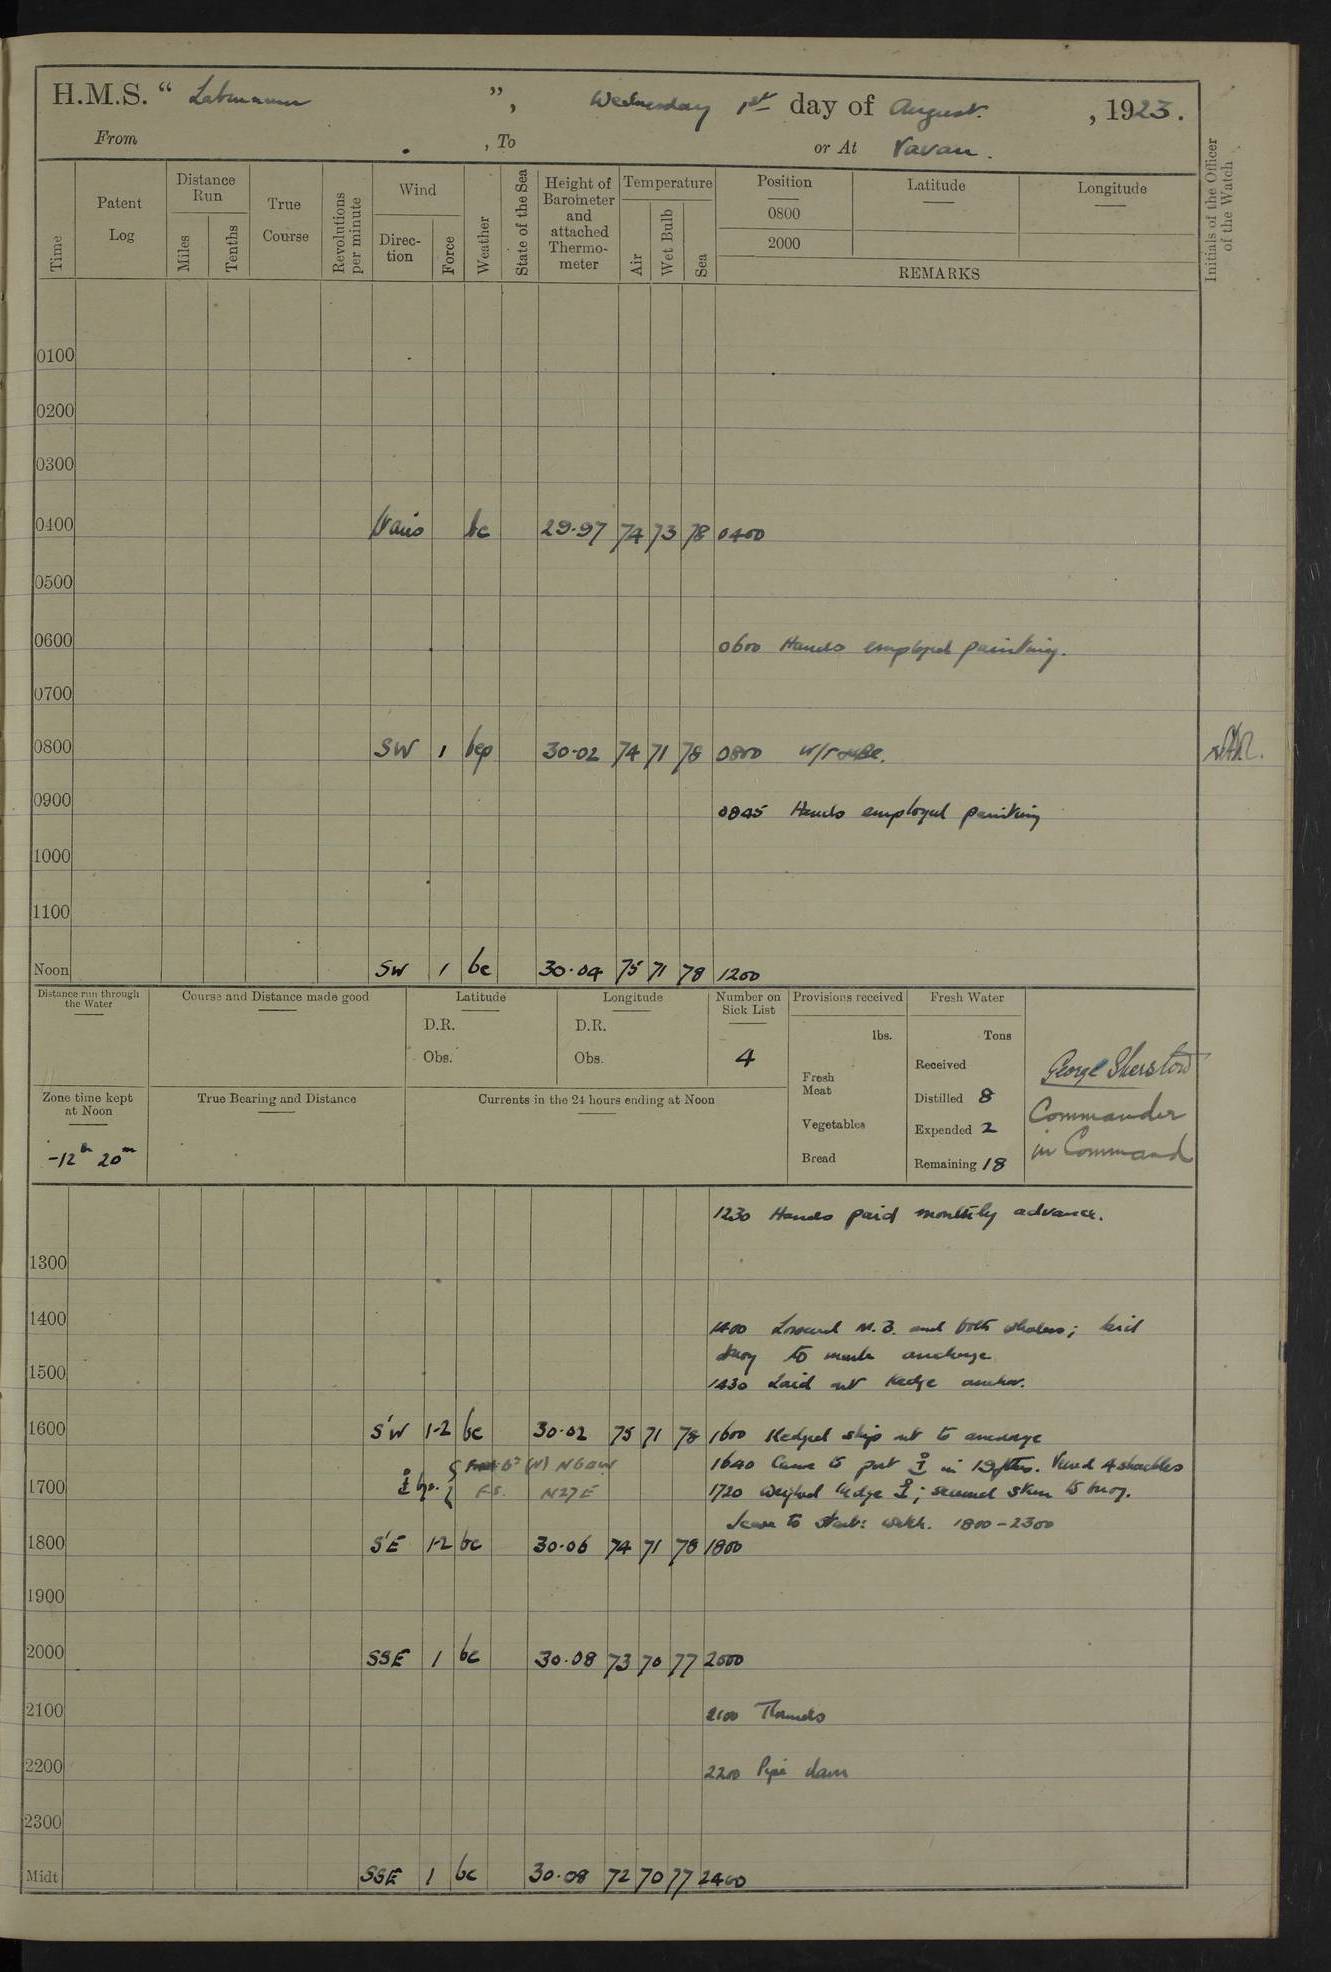 H.M.S. “ Laburnum ”, Wednesday 1st day of August , 1923.
From , To or At Vavau.
Time Patent Log Distance Run Miles Tenths True Course Revolutions per minute Wind Direc-tion Force Weather State of the Sea Height of Barometer and attached Thermo-meter Temperature Air Wet Bulb Sea Position Latitude Longitude
0800
2000
REMARKS
Initials of the Officer of the Watch
0100
0200
0300
0400 bc 29.97 74 73 78 0400
0500
0600 0600 Hands employed painting.
0700
0800 SW 1 bcp 30.02 74 71 78 0800
0900 0845 Hands employed painting
1000
1100
Noon SW 1 bc 30.04 75 71 78 1200
Distance run through the Water Course and Distance made good Latitude Longitude Number on Sick List Provisions received Fresh Water
D.R. D.R. lbs. Tons
Obs. Obs. 4 Received
Fresh Meat Distilled 8
Vegetables Expended 2
Bread Remaining 18
George Sherston
Commander
in Command
Zone time kept at Noon True Bearing and Distance Currents in the 24 hours ending at Noon
-12h 20m
1230 Hands paid monthly advance.
1300
1400 1400 Lowered M.B. and both whalers; laid
buoy to mark anchorage
1500 1430 Laid out kedge anchor.
1600 S'W 1-2 bc 30.02 75 71 78 1600 Kedged ship out to anchorage
N60W 1640 Came to port in 19 fms. Veered 4 shackles
1700 F.S. N27E 1720 Weighed kedge ; secured stern to buoy.
Leave to starb: watch. 1800-2300
1800 S'E 1-2 bc 30.06 74 71 78 1800
1900
2000 SSE 1 bc 30.08 73 70 77 2000
2100 2100 Rounds
2200 2200 Pipe down
2300
Midt SSE 1 bc 30.08 72 70 77 2400